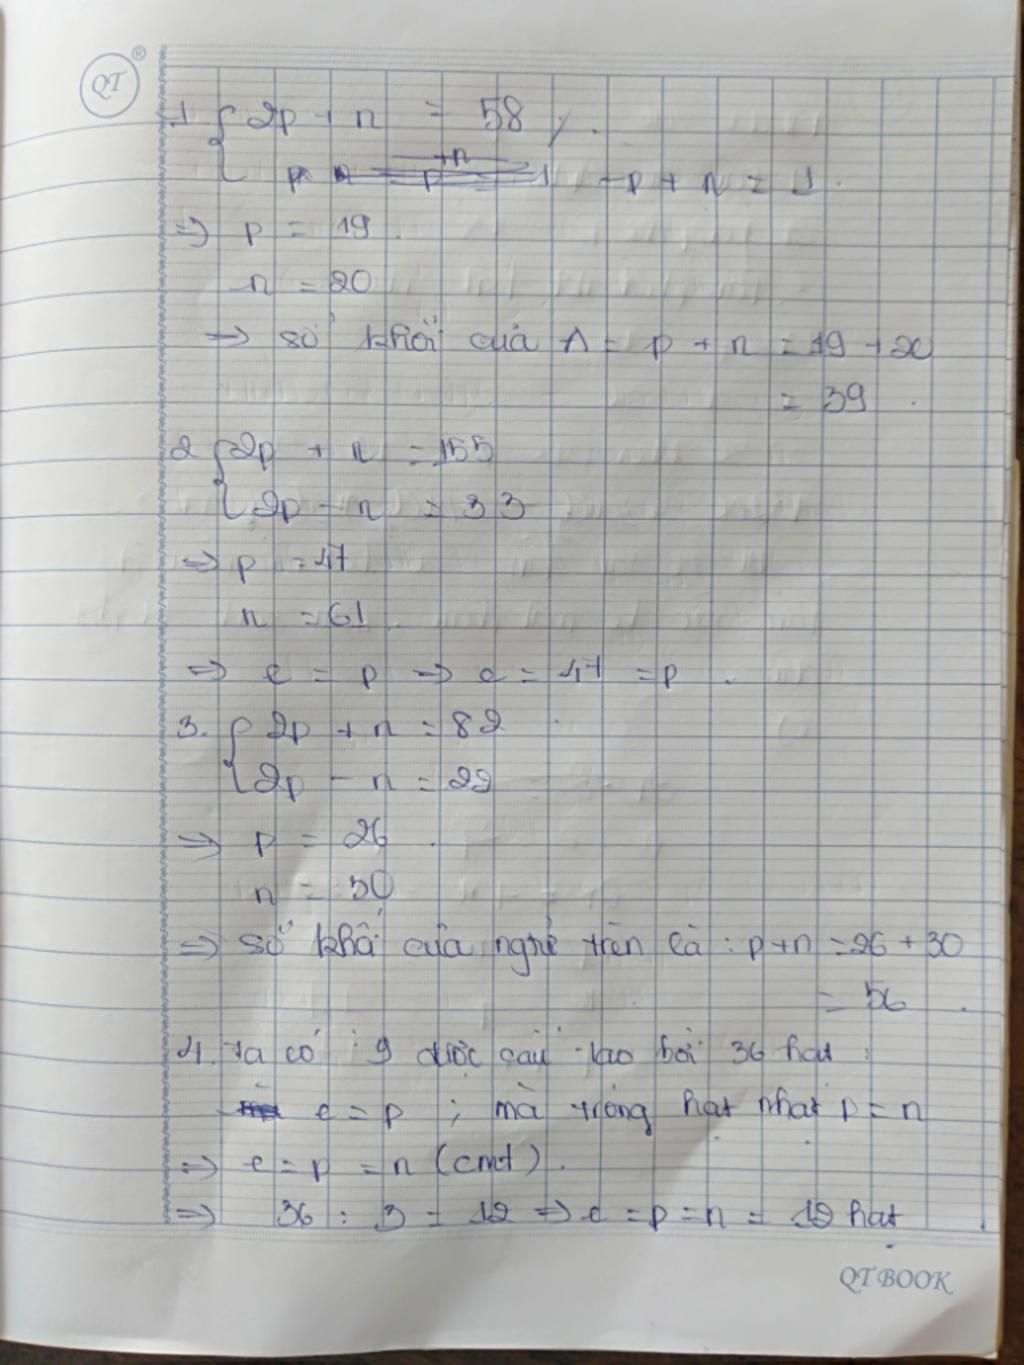 QT ®
1. { 2p + n = 58
-p + n = 1.
=> p = 19.
n = 20
=> số khối của A = p + n = 19 + 20
= 39.
2 { 2p + n = 155
2p - n = 33
=> p = 47
n = 61.
=> e = p => e = 47 = p.
3. { 2p + n = 82
2p - n = 22
=> p = 26.
n = 30
=> số khối của ngtử trên là : p+n = 26 + 30
= 56.
4. Ta có : 9 được cấu tạo bởi 36 hạt :
e = p ; mà trong hạt nhân p = n
=> e = p = n (cmt).
=> 36 : 3 = 12 => e = p = n = 12 hạt.
QT BOOK